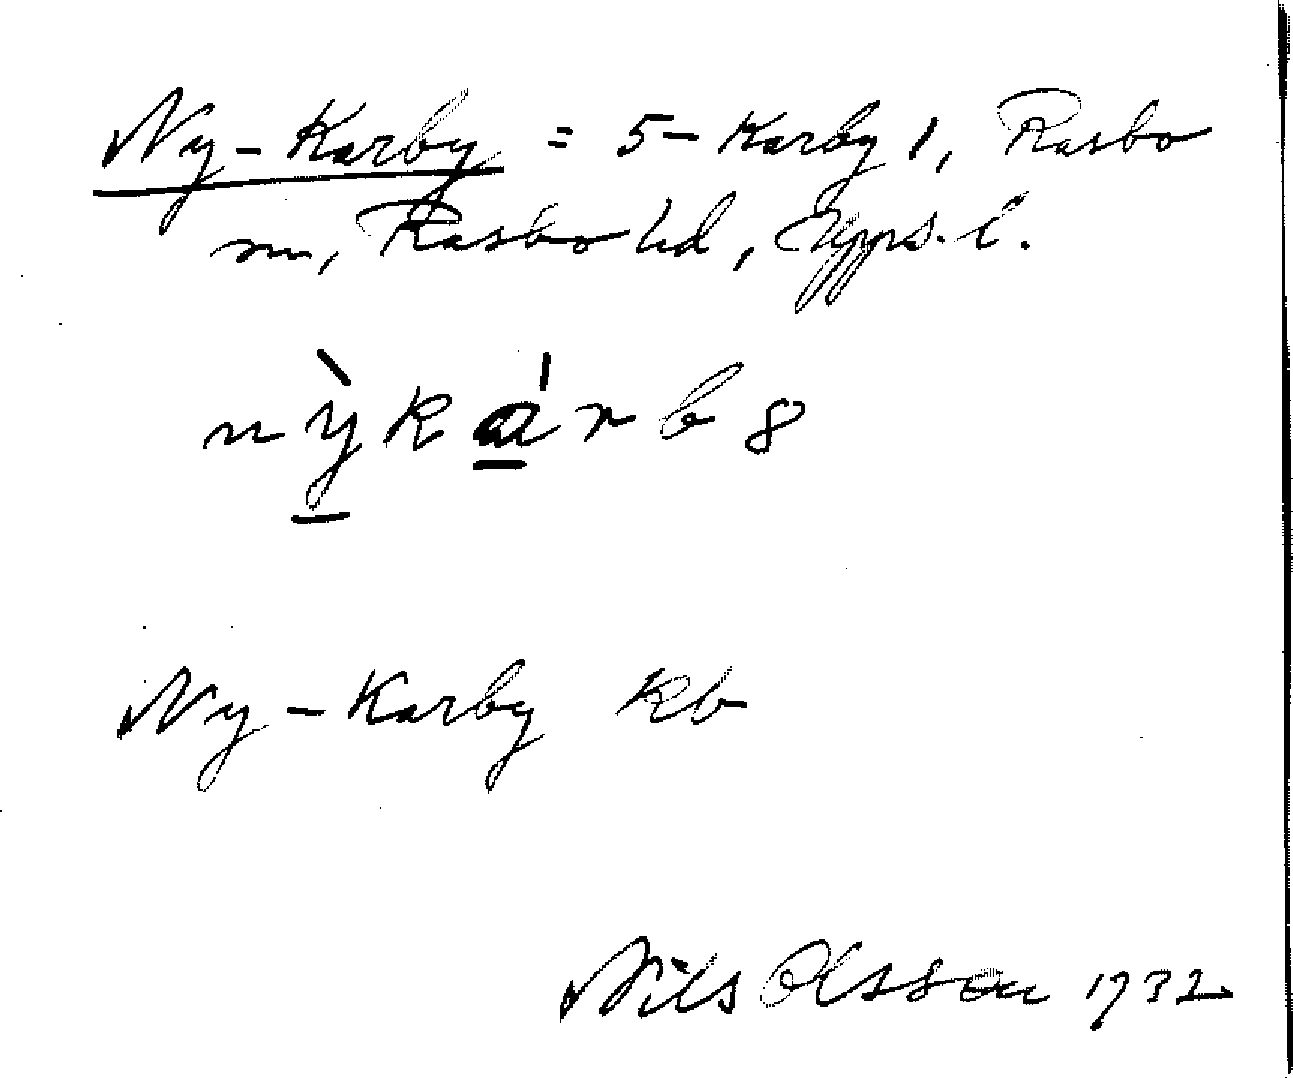 Ny-Karby = 5-Karby 1, Rasbo
sn, Rasbo hd, Upps. l.
nỳkárb8
Ny-Karby kb
Nils Olsson 1932